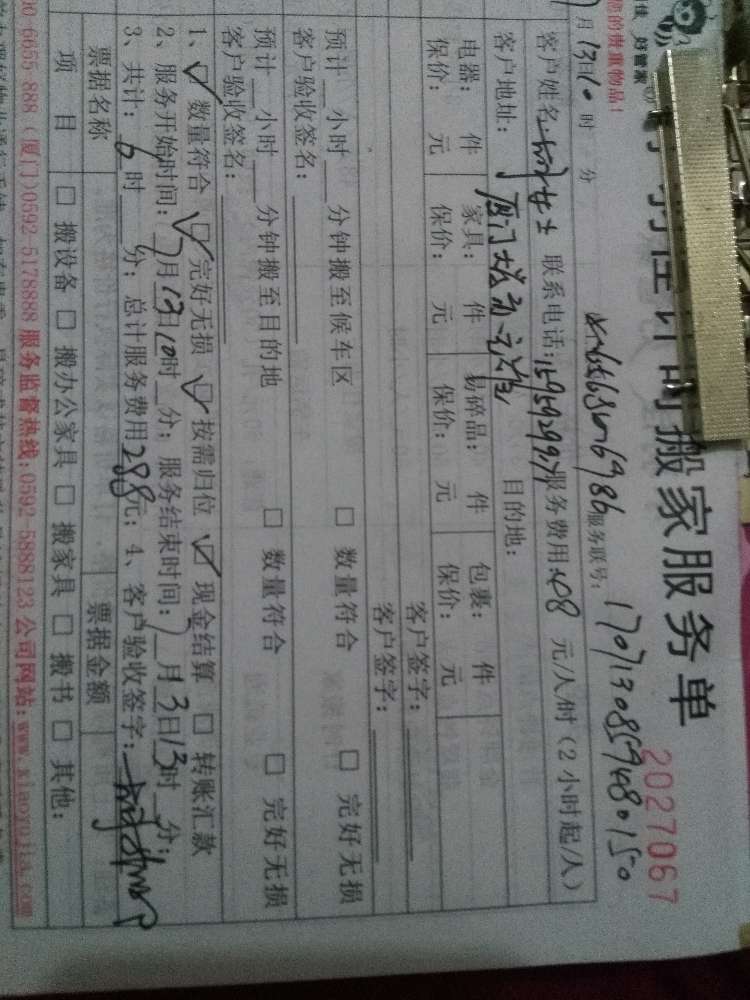 佳 好管家
您的贵重物品！
计时搬家服务单
2027067
月13日10时 分
服务联号：1707130859480150
客户姓名： 女士 联系电话：服务费用：48元/人/时（2小时起/人）
客户地址：厦门 目的地：
电器： 件 家具： 件 易碎品： 件 包裹： 件
保价： 元 保价： 元 保价： 元 保价： 元
客户签字：
客户签字：
预计__小时__分钟搬至候车区 □ 数量符合 □ 完好无损
客户验收签名：
预计__小时__分钟搬至目的地 □ 数量符合 □ 完好无损
客户验收签名：
1、☑ 数量符合 ☑ 完好无损 ☑ 按需归位 ☑ 现金结算 □ 转账汇款
2、服务开始时间：7月13日10时__分；服务结束时间：7月3日13时__分；
3、共计：6时__分；总计服务费用288元；4、客户验收签字：
票据名称 票据金额
项 目 □ 搬设备 □ 搬办公家具 □ 搬家具 □ 搬书 □ 其他：
00-6655-888（厦门）0592-5178888 服务监督热线：0592-5888123 公司网站：www.xiaoyujia.com